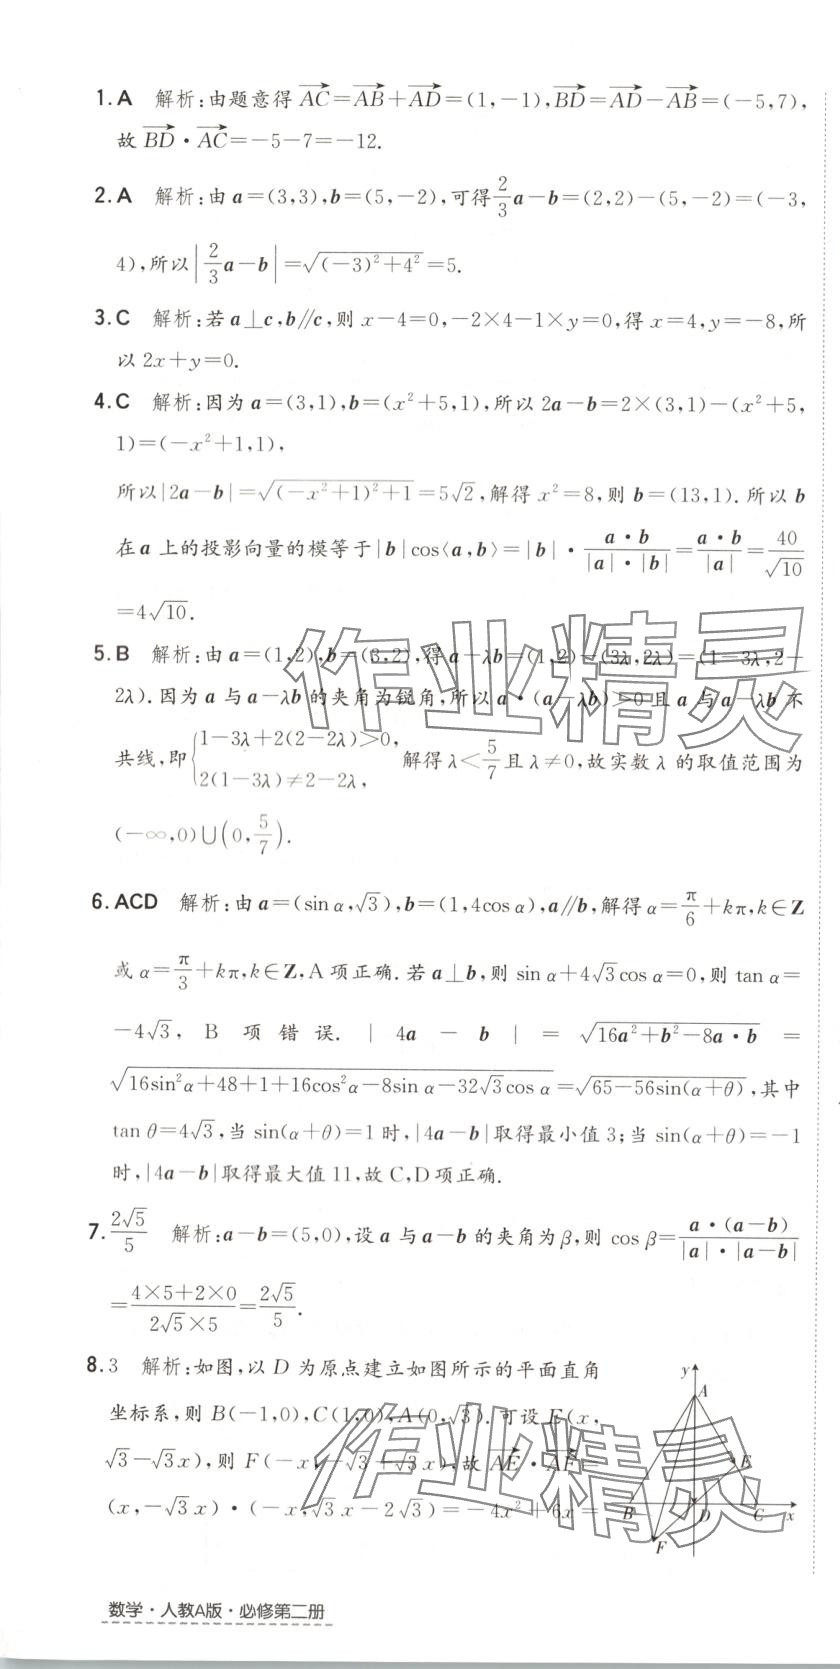 1. A 解析:由题意得 $\overrightarrow{AC}=\overrightarrow{AB}+\overrightarrow{AD}=(1,-1),\overrightarrow{BD}=\overrightarrow{AD}-\overrightarrow{AB}=(-5,7),$
故 $\overrightarrow{BD}\cdot\overrightarrow{AC}=-5-7=-12.$
2. A 解析:由 a=(3,3),b=(5,-2),可得 $\frac{2}{3}$a-b=(2,2)-(5,-2)=(-3,
4),所以 $\left|\frac{2}{3}a-b\right|=\sqrt{(-3)^2+4^2}=5.$
3. C 解析:若 a⊥c,b∥c,则 x-4=0,-2×4-1×y=0,得 x=4,y=-8,所
以 2x+y=0.
4. C 解析:因为 a=(3,1),b=(x²+5,1),所以 2a-b=2×(3,1)-(x²+5,
1)=(-x²+1,1),
所以|2a-b|=$\sqrt{(-x^2+1)^2+1}=5\sqrt{2}$,解得 x²=8,则 b=(13,1).所以 b
在 a 上的投影向量的模等于|b|cos⟨a,b⟩=|b|·$\frac{a\cdot b}{|a|\cdot|b|}=\frac{a\cdot b}{|a|}=\frac{40}{\sqrt{10}}$
=4$\sqrt{10}$.
5. B 解析:由 a=(1,2),b=(3,2),得 a-λb=(1,2)-(3λ,2λ)=(1-3λ,2-
2λ).因为 a 与 a-λb 的夹角为锐角,所以 a·(a-λb)>0 且 a 与 a-λb 不
共线,即 $\begin{cases}1-3λ+2(2-2λ)>0,\\2(1-3λ)≠2-2λ,\end{cases}$ 解得 λ<$\frac{5}{7}$ 且 λ≠0,故实数 λ 的取值范围为
(-∞,0)∪$\left(0,\frac{5}{7}\right)$.
6. ACD 解析:由 a=(sin α,$\sqrt{3}$),b=(1,4cos α),a∥b,解得 α=$\frac{π}{6}$+kπ,k∈Z
或 α=$\frac{π}{3}$+kπ,k∈Z,A 项正确.若 a⊥b,则 sin α+4$\sqrt{3}$cos α=0,则 tan α=
-4$\sqrt{3}$, B 项错误. |4a-b|=$\sqrt{16a^2+b^2-8a\cdot b}$=
$\sqrt{16\sin^2α+48+1+16\cos^2α-8\sin α-32\sqrt{3}\cos α}=\sqrt{65-56\sin(α+θ)}$,其中
tan θ=4$\sqrt{3}$,当 sin(α+θ)=1 时,|4a-b|取得最小值 3;当 sin(α+θ)=-1
时,|4a-b|取得最大值 11,故 C,D 项正确.
7. $\frac{2\sqrt{5}}{5}$ 解析:a-b=(5,0),设 a 与 a-b 的夹角为 β,则 cos β=$\frac{a\cdot(a-b)}{|a|\cdot|a-b|}$
=$\frac{4×5+2×0}{2\sqrt{5}×5}=\frac{2\sqrt{5}}{5}$.
8. 3 解析:如图,以 D 为原点建立如图所示的平面直角
坐标系,则 B(-1,0),C(1,0),A(0,$\sqrt{3}$).可设 E(x,
$\sqrt{3}-\sqrt{3}x$),则 F(-x,-$\sqrt{3}+\sqrt{3}x$),故 $\overrightarrow{AE}\cdot\overrightarrow{AF}$=
(x,-$\sqrt{3}$x)·(-x,$\sqrt{3}$x-2$\sqrt{3}$)=-4x²+6x=
y
A
E
B
D
C
x
F
作业精灵
作业精灵
数学·人教A版·必修第二册